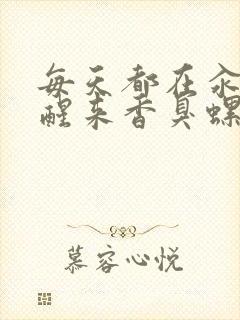 每天都在汆
醒来香臭螺
慕容心悦